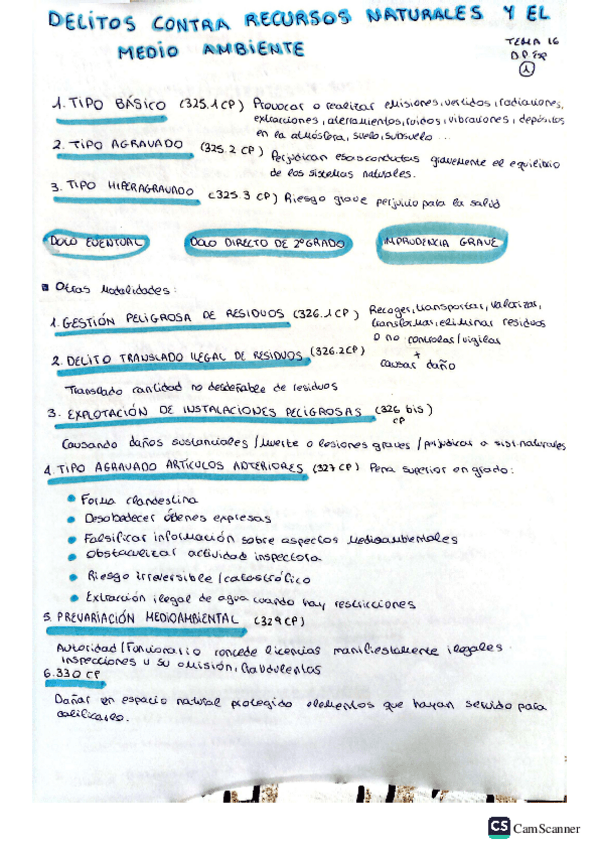 DELITOS CONTRA RECURSOS NATURALES Y EL
MEDIO AMBIENTE
TEMA 16
D.P. Esp
1
1. TIPO BÁSICO (325.1 CP) Provocar o realizar emisiones, vertidos, radiaciones,
extracciones, aterramientos, ruidos, vibraciones, depósitos
en la atmósfera, suelo, subsuelo ...
2. TIPO AGRAVADO (325.2 CP) Perjudican esas conductas gravemente el equilibrio
de los sistemas naturales.
3. TIPO HIPERAGRAVADO (325.3 CP) Riesgo grave perjuicio para la salud
DOLO EVENTUAL DOLO DIRECTO DE 2º GRADO IMPRUDENCIA GRAVE
Otras Modalidades:
1. GESTIÓN PELIGROSA DE RESIDUOS (326.1 CP) Recoger, transportar, valorizar,
transformar, eliminar residuos
o no controlar/vigilar
+
causar daño
2. DELITO TRANSLADO ILEGAL DE RESIDUOS (326.2 CP)
Translado cantidad no desdeñable de residuos
3. EXPLOTACIÓN DE INSTALACIONES PELIGROSAS (326 bis)
CP
Causando daños sustanciales / muerte o lesiones graves / perjudicar a sist. naturales
4. TIPO AGRAVADO ARTÍCULOS ANTERIORES (327 CP) Pena superior en grado:
Forma clandestina
Desobedecer órdenes expresas
Falsificar información sobre aspectos medioambientales
Obstaculizar actividad inspectora
Riesgo irreversible / catastrófico
Extracción ilegal de agua cuando hay restricciones
5. PREVARIACIÓN MEDIOAMBIENTAL (329 CP)
Autoridad/Funcionario concede licencias manifiestamente ilegales
inspecciones y su omisión, fraudulentas
6. 330 CP
Dañar en espacio natural protegido elementos que hayan servido para
calificarlo.
CS CamScanner